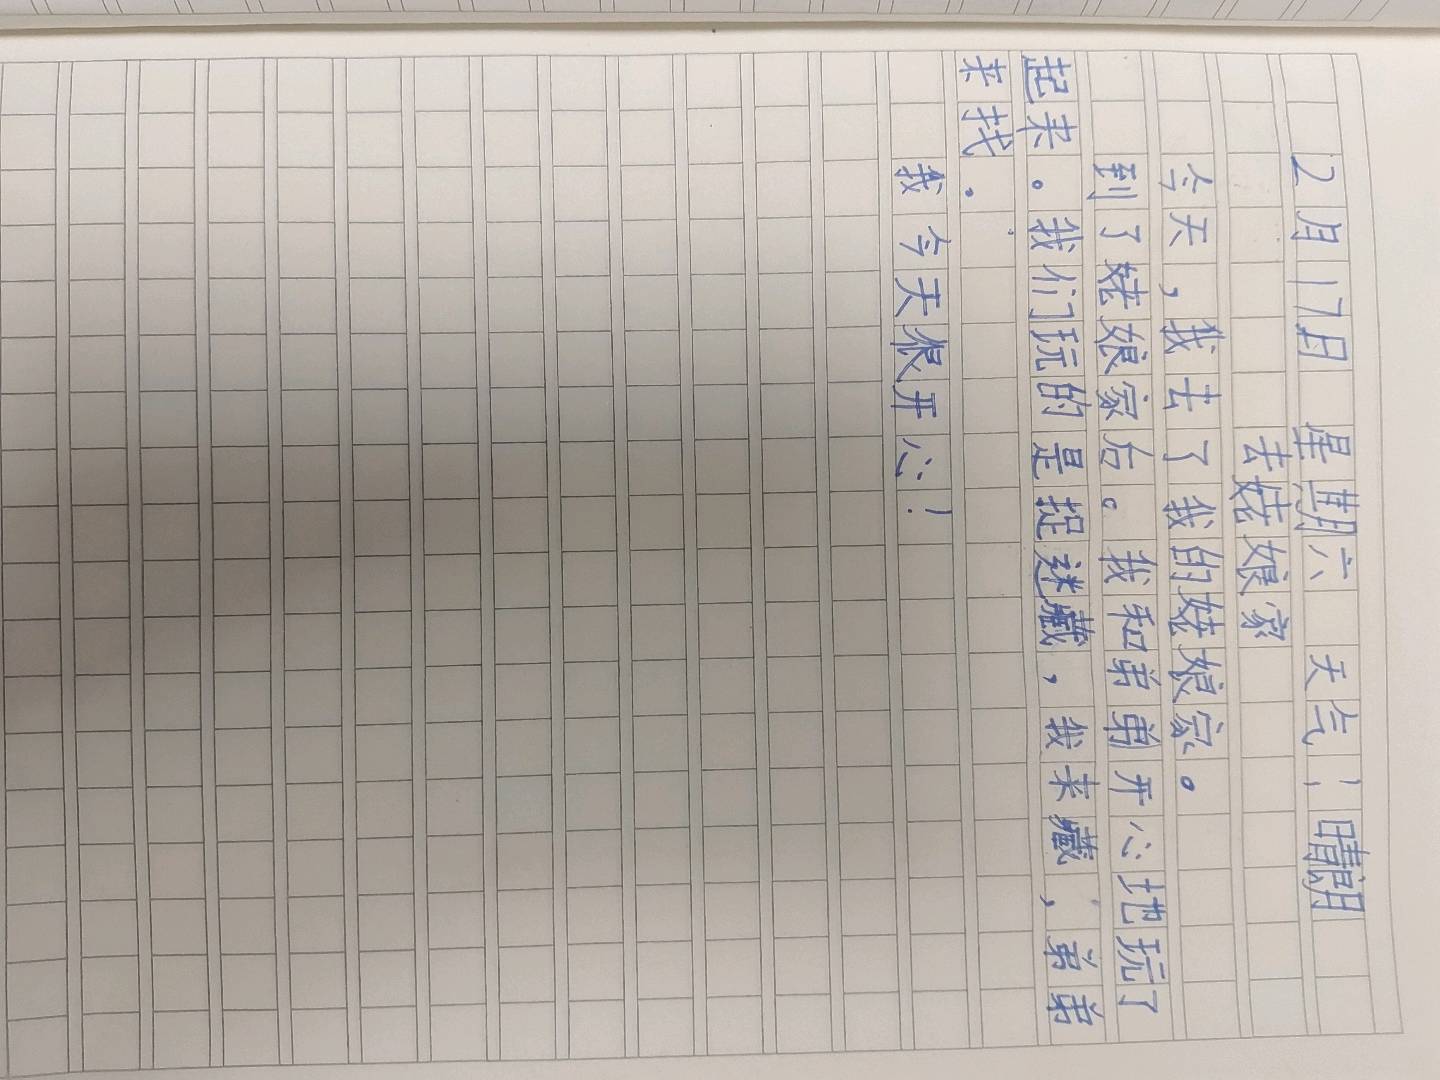 2月17日 星期六 天气：晴朗
去姥娘家
今天，我去了我的姥娘家。
到了姥娘家后。我和弟弟开心地玩了
起来。我们玩的是捉迷藏，我来藏，弟弟
来找.
我今天很开心！